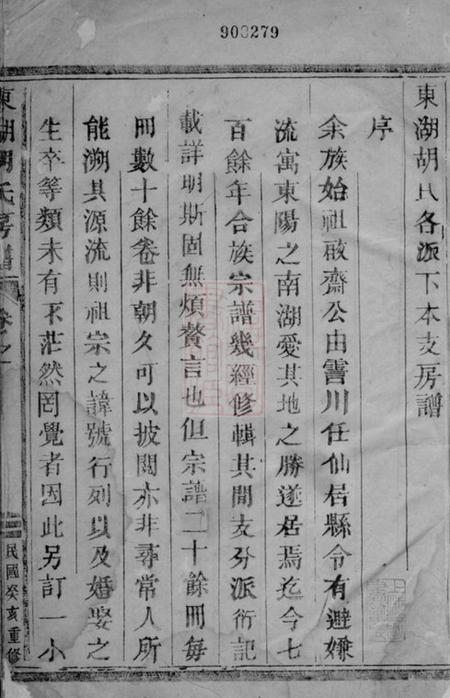 900279
東湖胡氏各派下本支房譜
序
余族始祖啟齋公由霅川任仙居縣令有避嫌
流寓東陽之南湖愛其地之勝遂居焉迄今七
百餘年合族宗譜幾經修輯其間支分派衍記
載詳明斯固無煩贅言也但宗譜二十餘冊每
冊數十餘卷非朝夕可以披閱亦非尋常人所
能溯其源流則祖宗之諱號行列以及婚娶之
生卒等類未有不茫然罔覺者因此另訂一小
東湖胡氏房譜
卷之一
民國癸亥重修